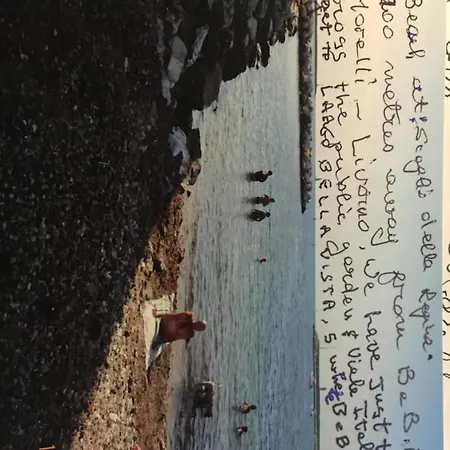 Beach at Scogli della Regina.
200 metres away from B&B
Morelli - Livorno, we have Just t
cross the public garden & Viale Ital
get to LARGO BELLAVISTA, 5 B&B